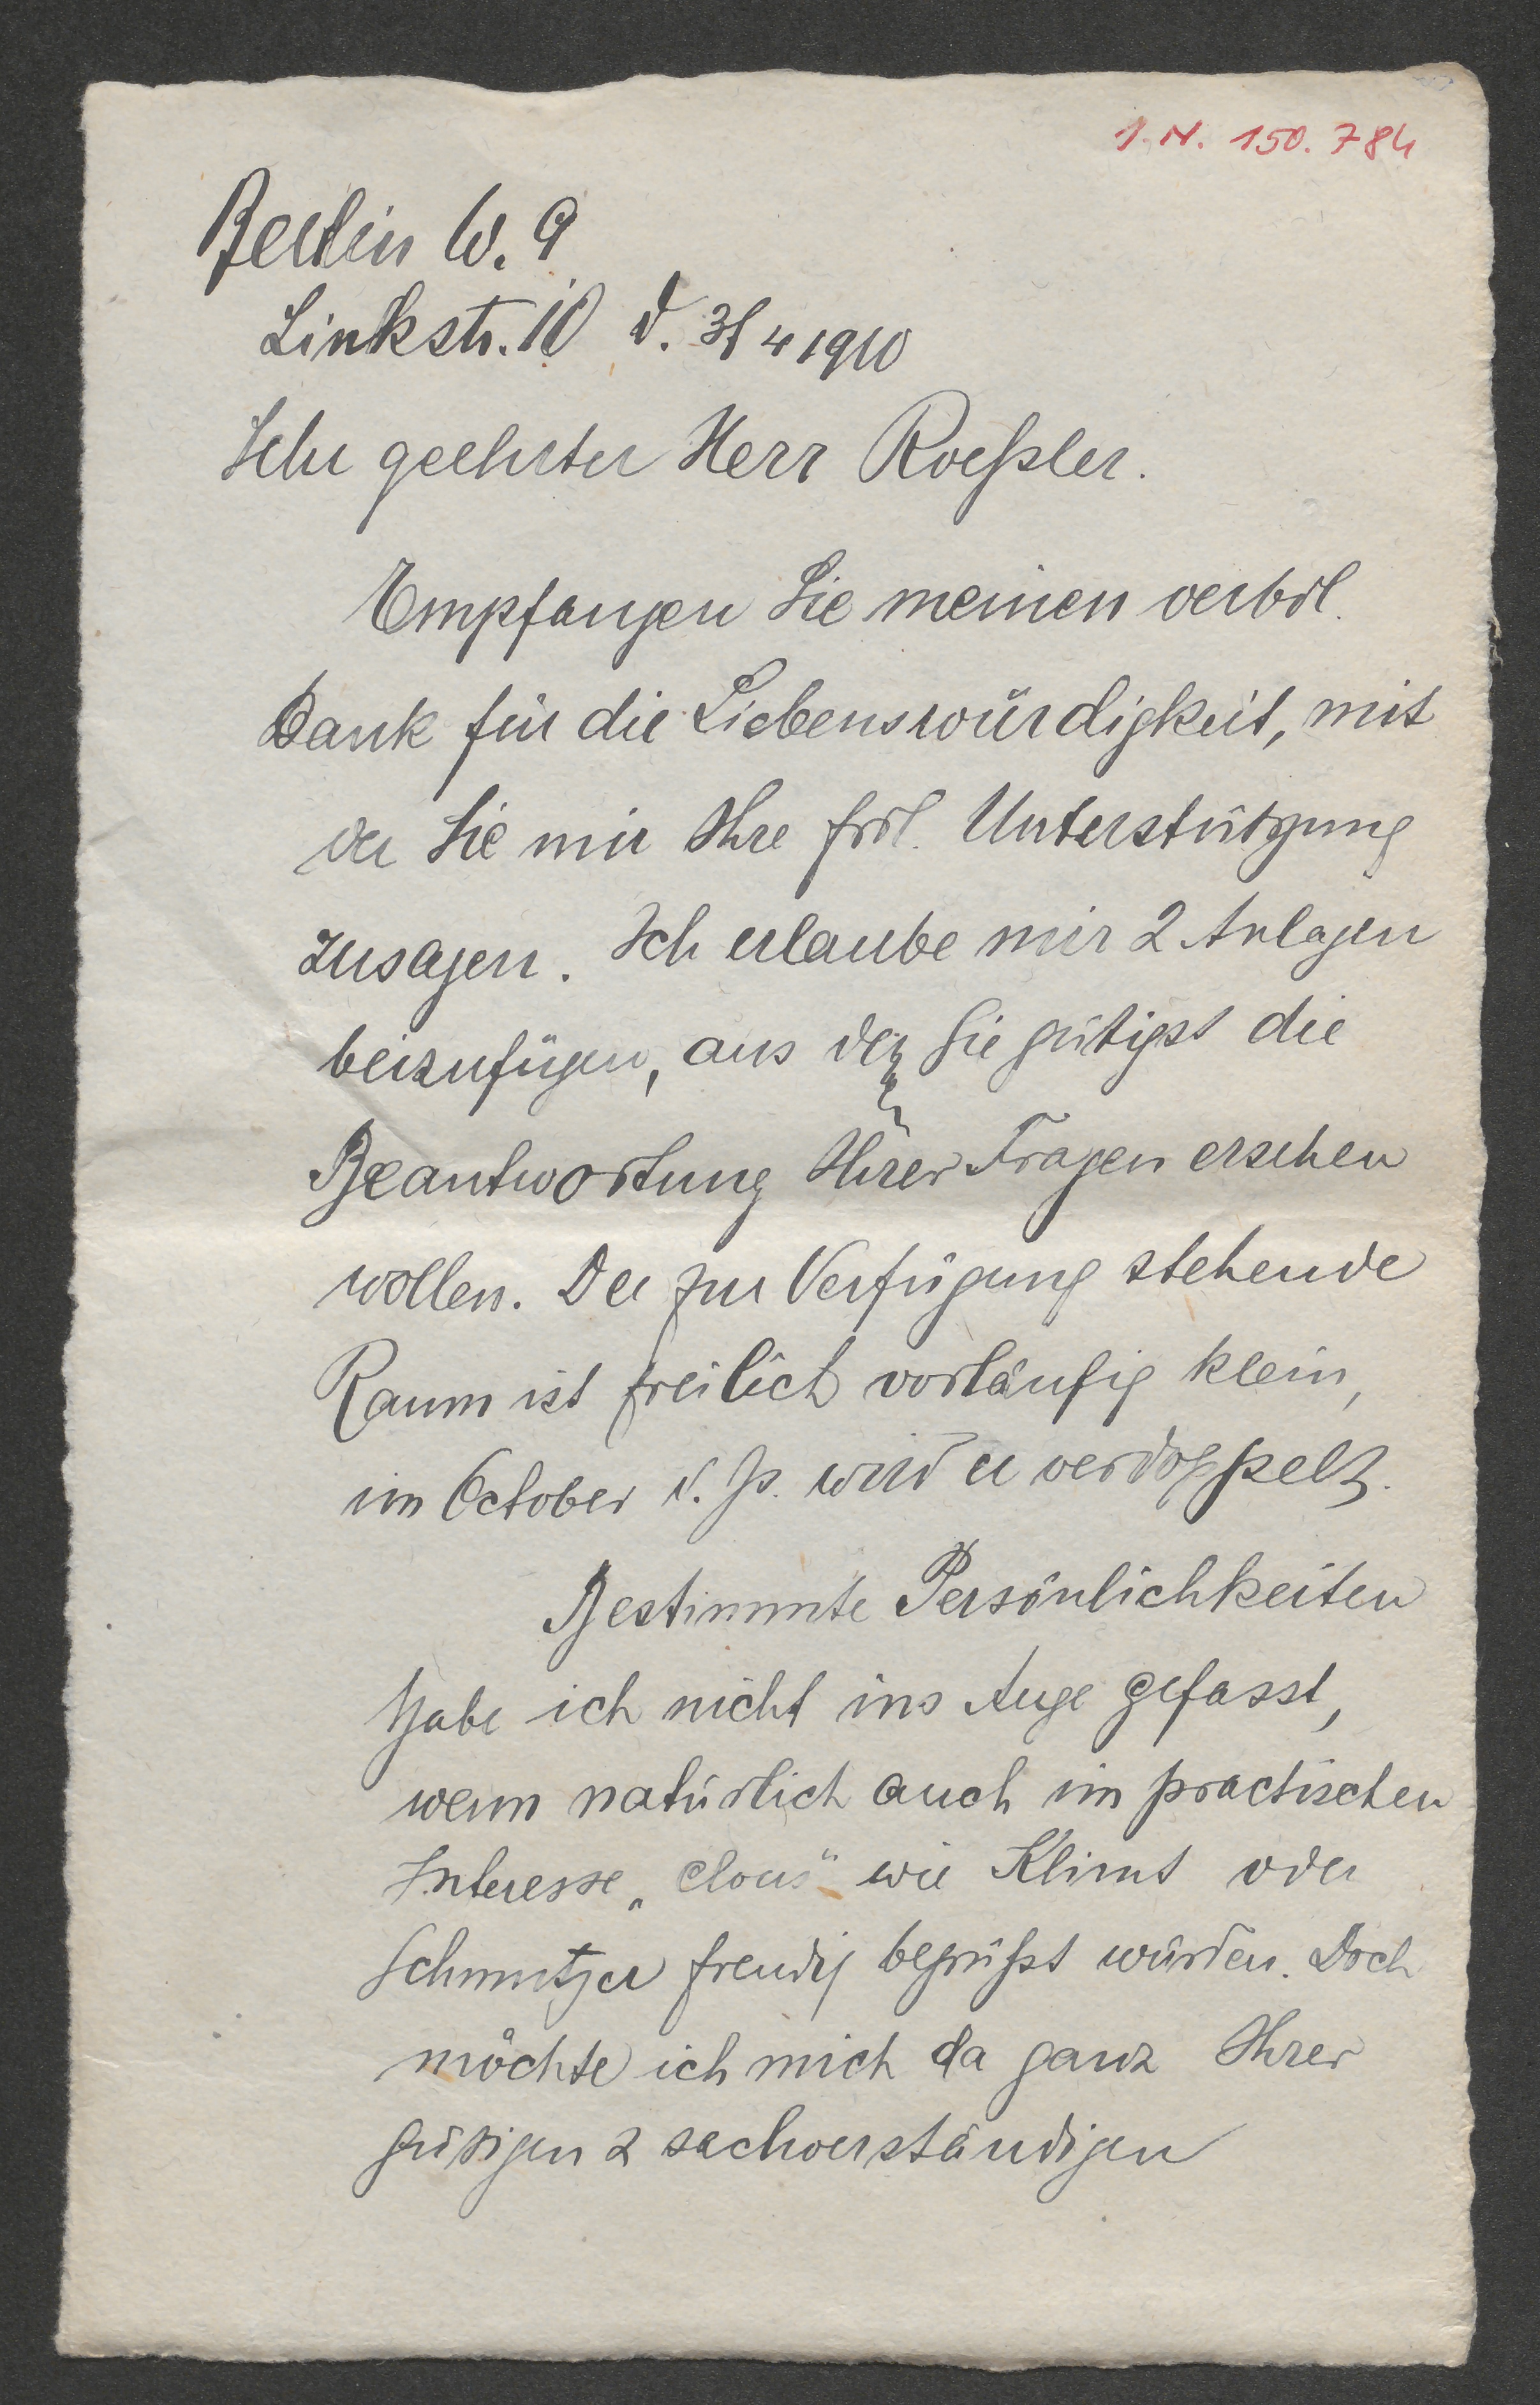 I. N. 150.784
Berlin W. 9
Linkstr. 10 d. 3/4 1910
Sehr geehrter Herr Roeßler.
Empfangen Sie meinen verbdl.
Dank für die Liebenswürdigkeit, mit
der Sie mir Ihre frdl. Unterstützung
zusagen. Ich erlaube mir 2 Anlagen
beizufügen, aus den Sie gütigst die
Beantwortung Ihrer Fragen ersehen
wollen. Der zur Verfügung stehende
Raum ist freilich vorläufig klein,
im October d. Js. wird er verdoppelt.
Bestimmte Persönlichkeiten
habe ich nicht ins Auge gefasst,
wenn natürlich auch im practischen
Interesse „clous“ wie Klimt oder
Schmutzer freudig begrüßt würden. Doch
möchte ich mich da ganz Ihrer
gütigen & sachverständigen